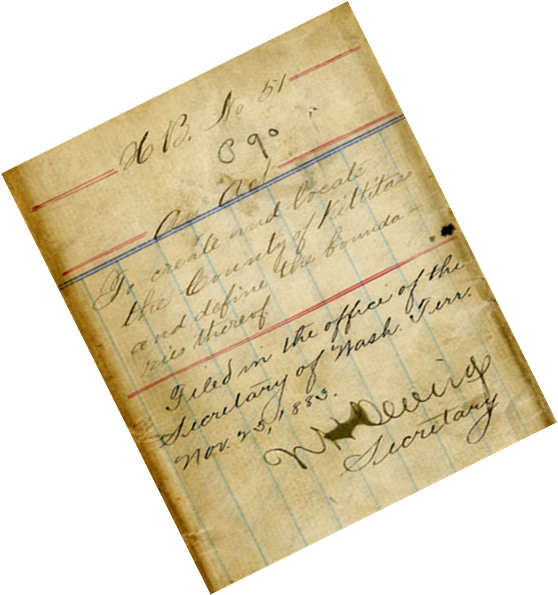 H B. No 51
890
An Act
To create and locate
the County of Kittitas
and define the bounda-
ries thereof
Filed in the office of the
Secretary of Wash. Terr.
Nov. 23, 1883.
N H Owings
Secretary